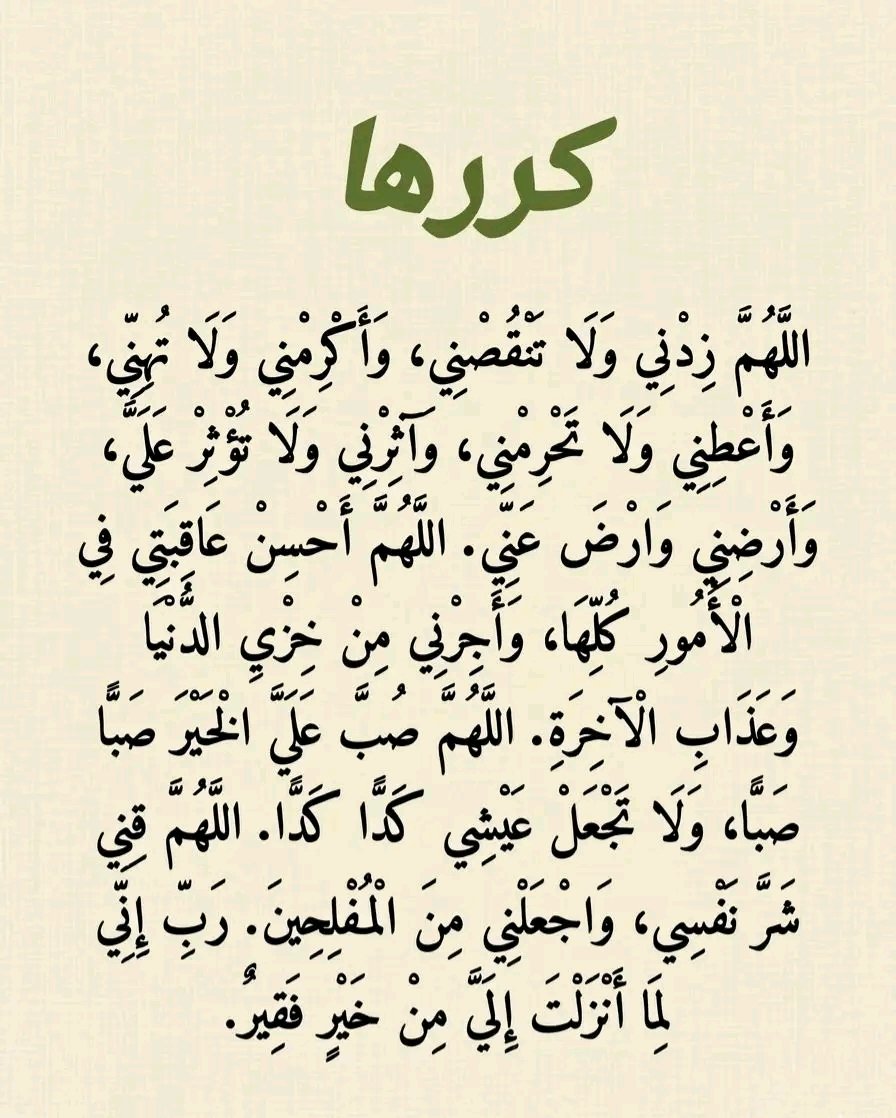 كررها
اللَّهُمَّ زِدْنِي وَلَا تَنْقُصْنِي، وَأَكْرِمْنِي وَلَا تُهِنِّي،
وَأَعْطِنِي وَلَا تَحْرِمْنِي، وَآثِرْنِي وَلَا تُؤْثِرْ عَلَيَّ،
وَأَرْضِنِي وَارْضَ عَنِّي. اللَّهُمَّ أَحْسِنْ عَاقِبَتِي فِي
الْأُمُورِ كُلِّهَا، وَأَجِرْنِي مِنْ خِزْيِ الدُّنْيَا
وَعَذَابِ الْآخِرَةِ. اللَّهُمَّ صُبَّ عَلَيَّ الْخَيْرَ صَبًّا
صَبًّا، وَلَا تَجْعَلْ عَيْشِي كَدًّا كَدًّا. اللَّهُمَّ قِنِي
شَرَّ نَفْسِي، وَاجْعَلْنِي مِنَ الْمُفْلِحِينَ. رَبِّ إِنِّي
لِمَا أَنْزَلْتَ إِلَيَّ مِنْ خَيْرٍ فَقِيرٌ.